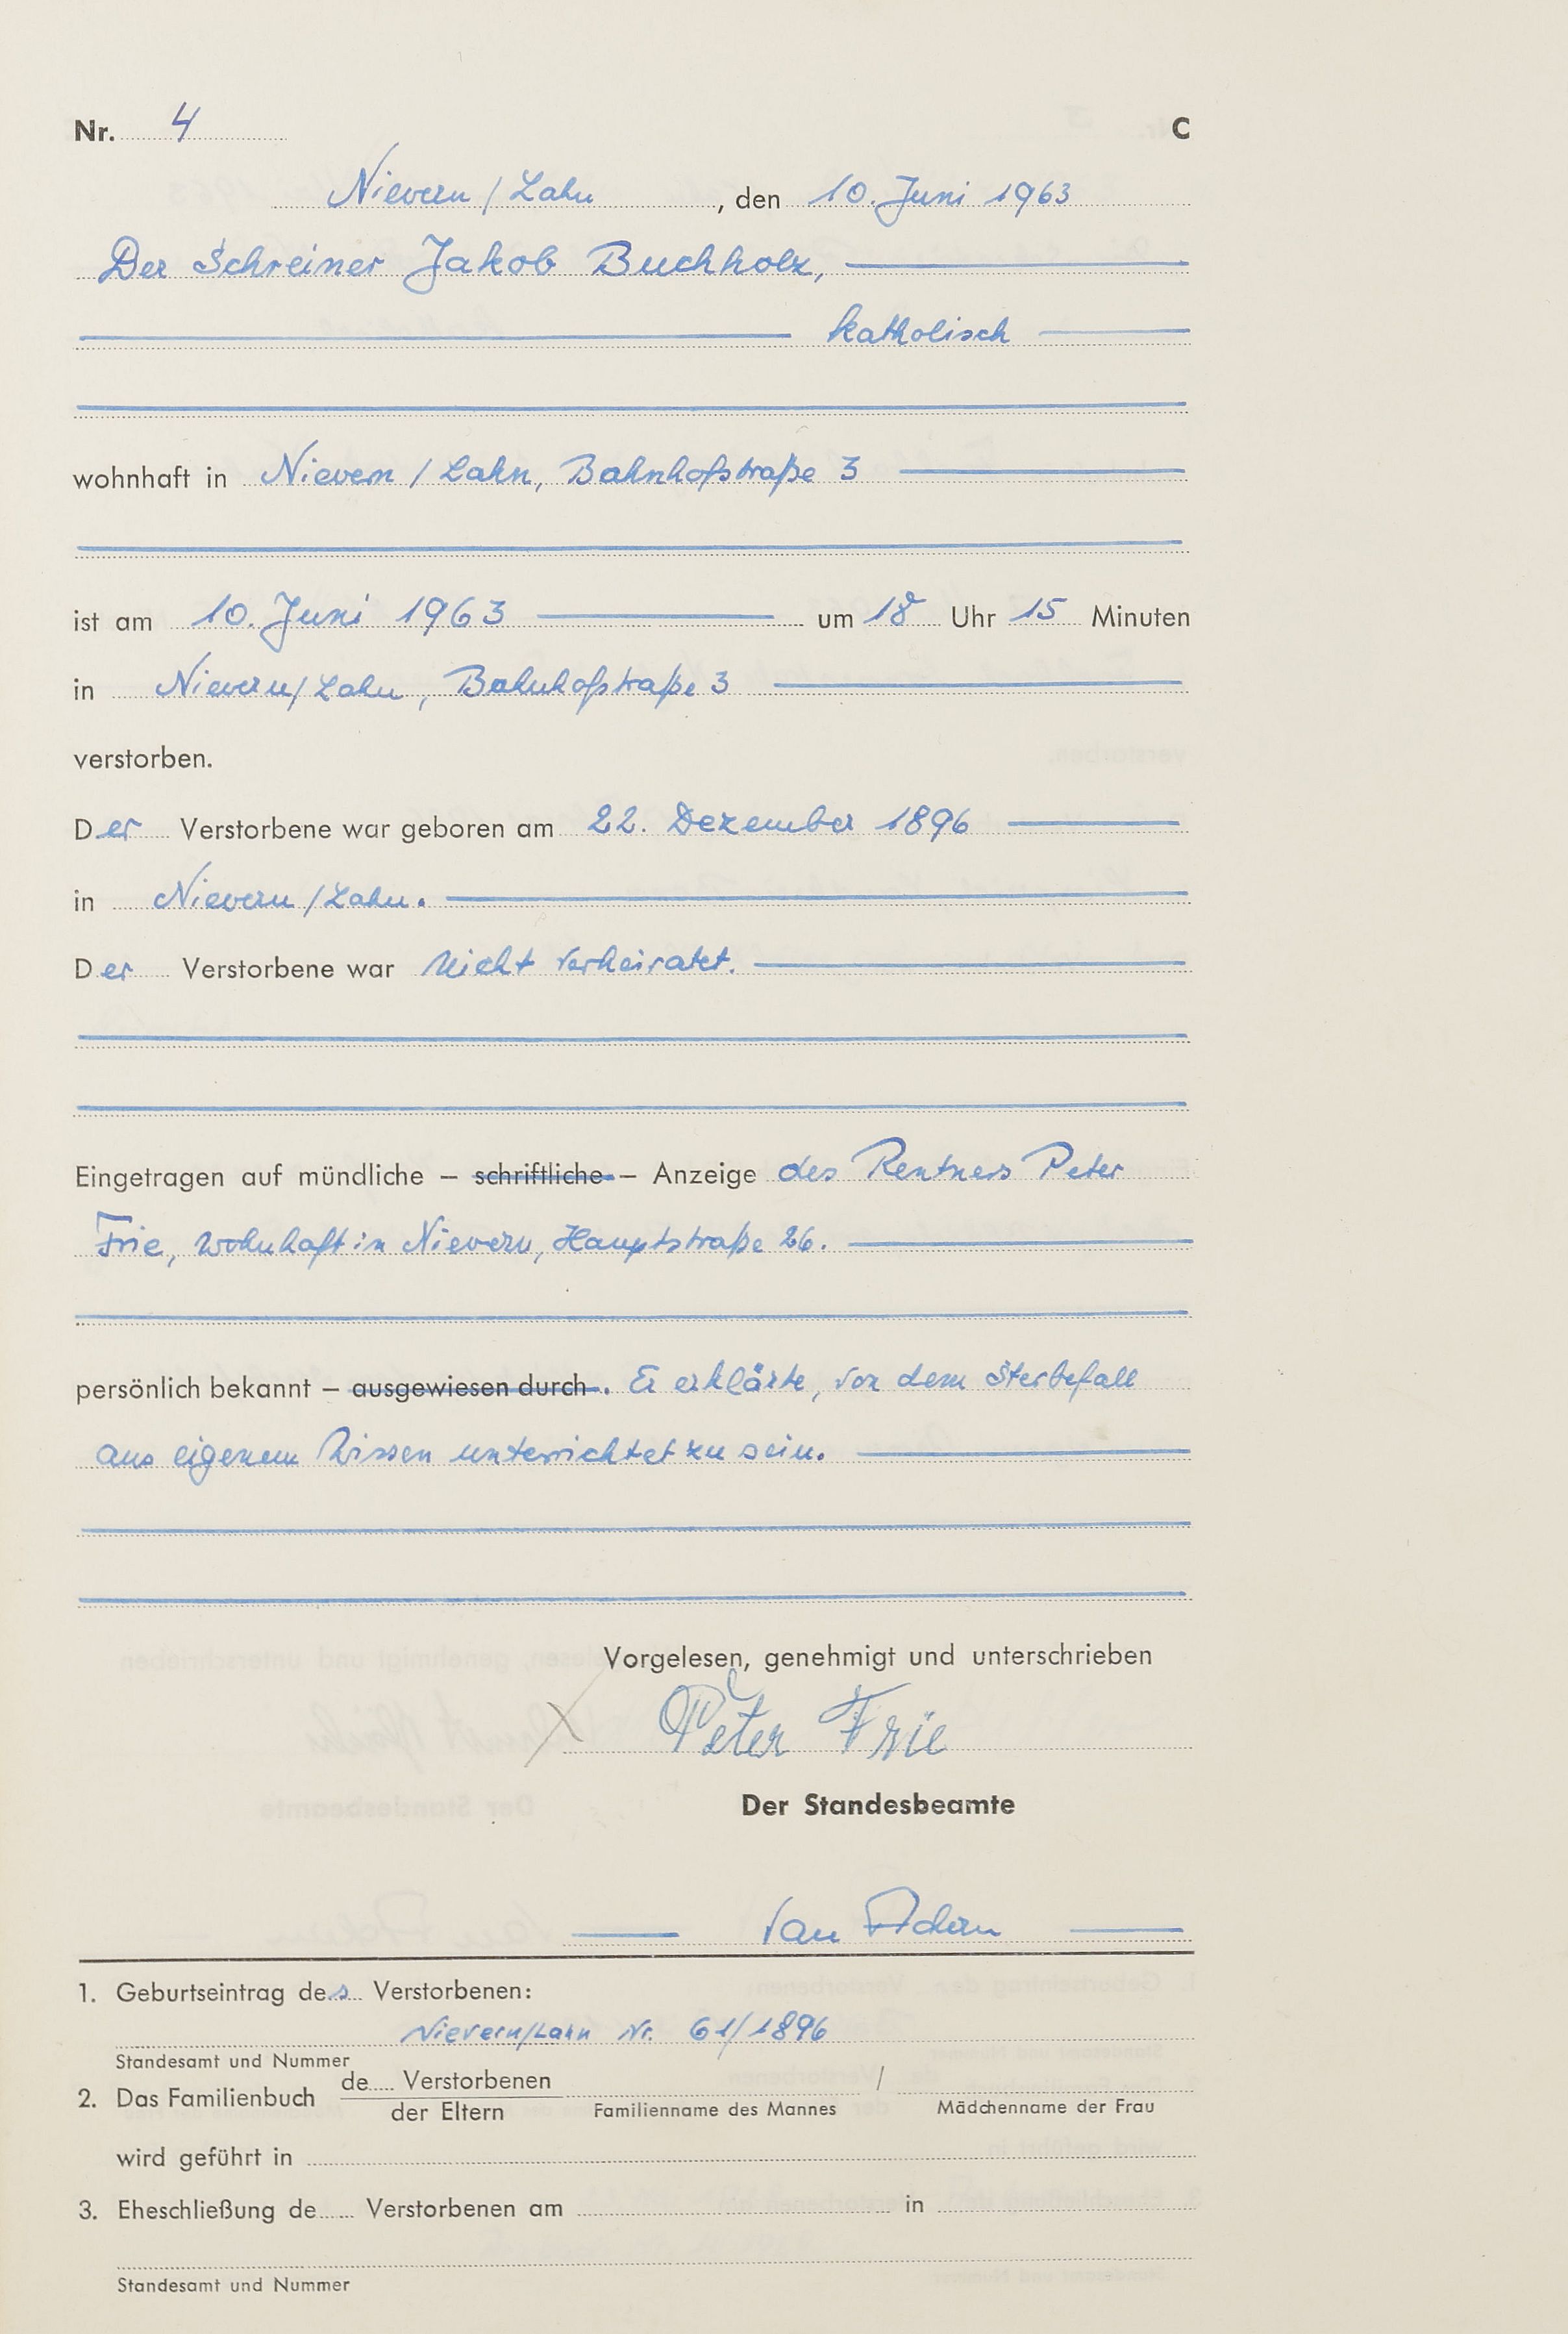 Nr. 4 C
Nievern / Lahn, den 10. Juni 1963
Der Schreiner Jakob Buchholz,
katholisch
wohnhaft in Nievern / Lahn, Bahnhofstraße 3
ist am 10. Juni 1963 um 18 Uhr 15 Minuten
in Nievern/Lahn, Bahnhofstraße 3
verstorben.
Der Verstorbene war geboren am 22. Dezember 1896
in Nievern/Lahn.
Der Verstorbene war nicht verheiratet.
Eingetragen auf mündliche – schriftliche – Anzeige des Rentners Peter
Frie, wohnhaft in Nievern, Hauptstraße 26.
persönlich bekannt – ausgewiesen durch. Er erklärte, von dem Sterbefall
aus eigenem Wissen unterrichtet zu sein.
Vorgelesen, genehmigt und unterschrieben
Peter Frie
Der Standesbeamte
1. Geburtseintrag des Verstorbenen:
Nievern/Lahn Nr. 61/1896
Standesamt und Nummer
2. Das Familienbuch de Verstorbenen /
der Eltern Familienname des Mannes Mädchenname der Frau
wird geführt in
3. Eheschließung de Verstorbenen am in
Standesamt und Nummer